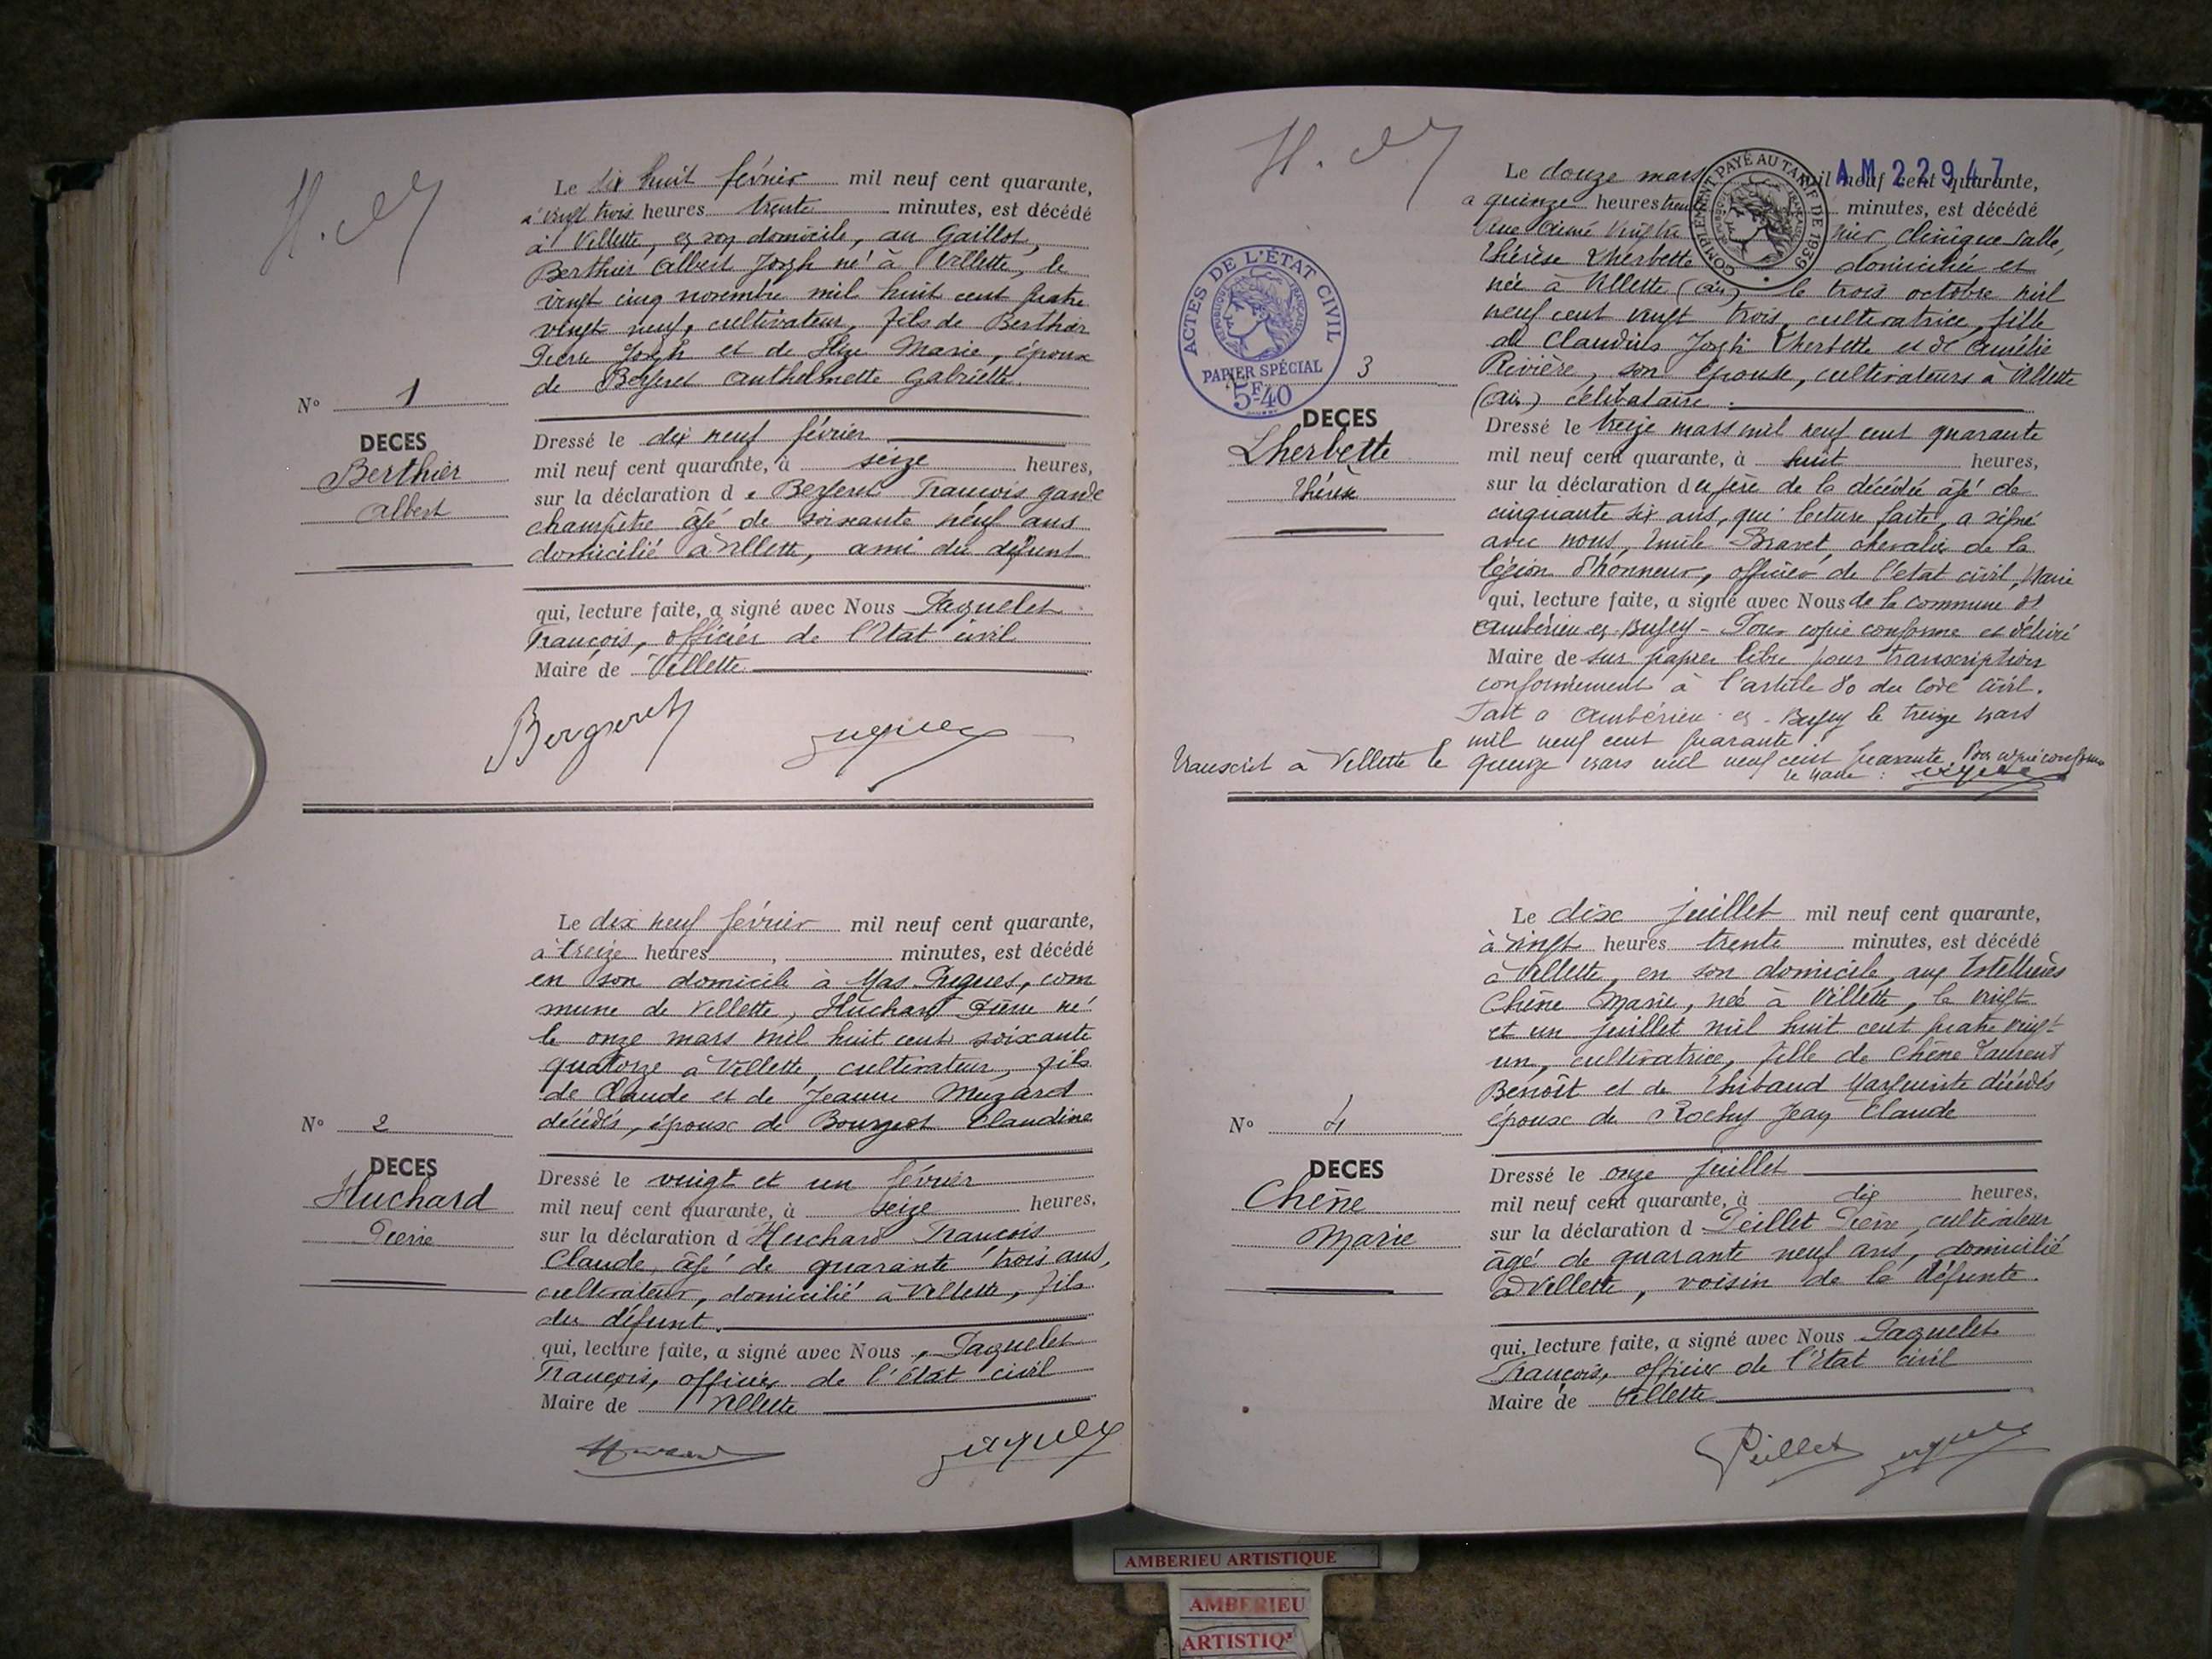 Le dix huit février mil neuf cent quarante,
à vingt trois heures trente minutes, est décédé
à Villette, en son domicile, au Gaillot,
Berthier Albert Joseph né à Villette, le
vingt cinq novembre mil huit cent quatre
vingt neuf, cultivateur, fils de Berthier
Pierre Joseph et de Marie, époux
de Bergeret Anthelmette Gabrielle.
N° 1
DECES
Berthier
Albert
Dressé le dix neuf février
mil neuf cent quarante, à seize heures,
sur la déclaration de Bergeret François garde
champêtre âgé de soixante neuf ans
domicilié à Villette, ami du défunt
qui, lecture faite, a signé avec Nous Paquelet
François, officier de l'Etat civil
Maire de Villette
Bergeret
Le dix neuf février mil neuf cent quarante,
à treize heures, minutes, est décédé
en son domicile à Mas Pugues, com
mune de Villette, Huchard Pierre né
le onze mars mil huit cent soixante
quatorze à Villette, cultivateur, fils
de Claude et de Jeanne Muzard
décédés, époux de Bourgeot Claudine
N° 2
DECES
Huchard
Pierre
Dressé le vingt et un février
mil neuf cent quarante, à seize heures,
sur la déclaration d Huchard François
Claude, âgé de quarante trois ans,
cultivateur, domicilié à Villette, fils
du défunt.
qui, lecture faite, a signé avec Nous, Paquelet
François, officier de l'état civil
Maire de Villette
AM 22947
COMPLEMENT PAYÉ AU TARIF DE 1939
Le douze mars mil neuf cent quarante,
a quinze heures minutes, est décédé
clinique Salle,
Thérèse Lherbette domiciliée et
née à Villette (Ain) le trois octobre mil
neuf cent vingt trois, cultivatrice, fille
de Claudius Joseph Lherbette et de Aurélie
Rivière, son épouse, cultivateurs à Villette
(Ain) célibataire.
ACTES DE L'ÉTAT CIVIL
RÉPUBLIQUE FRANÇAISE
PAPIER SPÉCIAL
5F.40
3
DECES
Lherbette
Thérèse
Dressé le treize mars mil neuf cent quarante
mil neuf cent quarante, à huit heures,
sur la déclaration du père de la décédée âgé de
cinquante six ans, qui lecture faite, a signé
avec nous, Emile Bravet, chevalier de la
légion d'honneur, officier de l'etat civil, Maire
qui, lecture faite, a signé avec Nous de la commune de
Ambérieu en Bugey - Pour copie conforme et délivré
Maire de sur papier libre pour transcription
conformément à l'article 80 du Code Civil.
Fait a Ambérieu-en-Bugey le treize mars
mil neuf cent quarante.
Transcrit à Villette le quinze mars mil neuf cent quarante. Pour copie conforme
le Maire :
Le dix juillet mil neuf cent quarante,
à vingt heures trente minutes, est décédé
à Villette, en son domicile, aux
Chêne Marie, née à Villette, le vingt
et un juillet mil huit cent quatre vingt
un, cultivatrice, fille de Chêne Laurent
Benoît et de Thibaud Marguerite décédés
épouse de Rochy Jean Claude
N° 4
DECES
Chêne
Marie
Dressé le onze juillet
mil neuf cent quarante, à dix heures,
sur la déclaration d Peillet Pierre, cultivateur
âgé de quarante neuf ans, domicilié
à Villette, voisin de la défunte.
qui, lecture faite, a signé avec Nous Paquelet
François, officier de l'Etat civil
Maire de Villette
Peillet
AMBERIEU ARTISTIQUE
AMBERIEU
ARTISTIQ